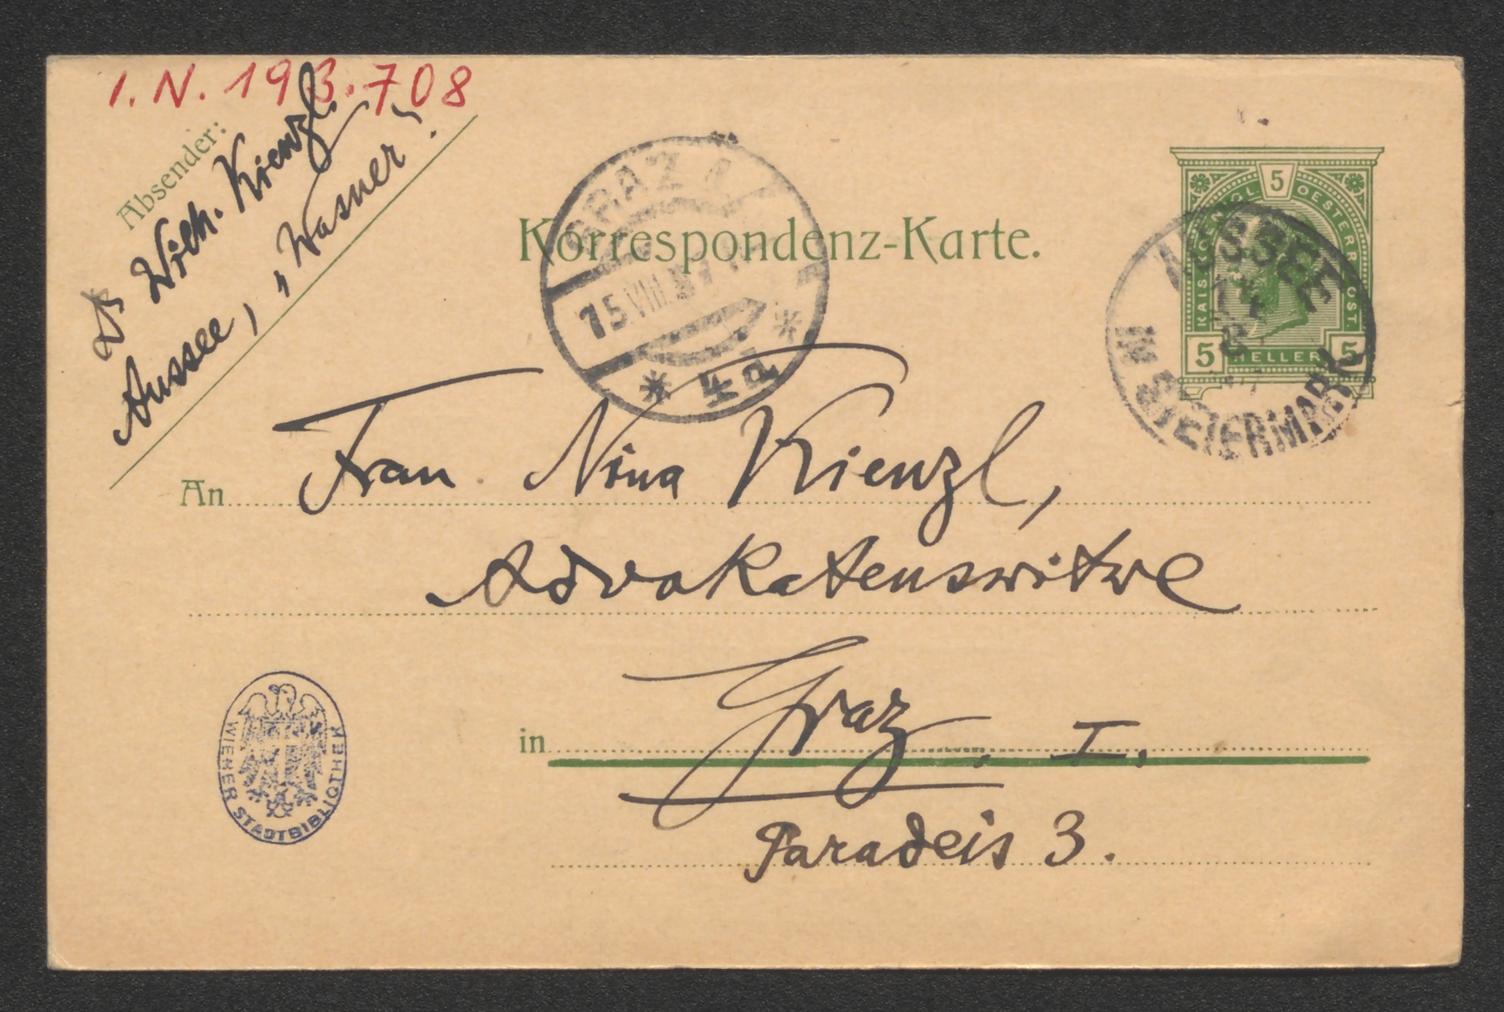 I.N. 193.708
Absender:
Dr Wilh. Kienzl.
Aussee, „Wasner“.
Korrespondenz-Karte.
GRAZ 1
15.VIII
* 4a *
5
KAIS. KOENIGL. OESTERR. POST.
5 HELLER 5
AUSSEE
IN STEIERMARK
An Frau Nina Kienzl,
Advokatenswitwe
in Graz. I.
Paradeis 3.
WIENER STADTBIBLIOTHEK